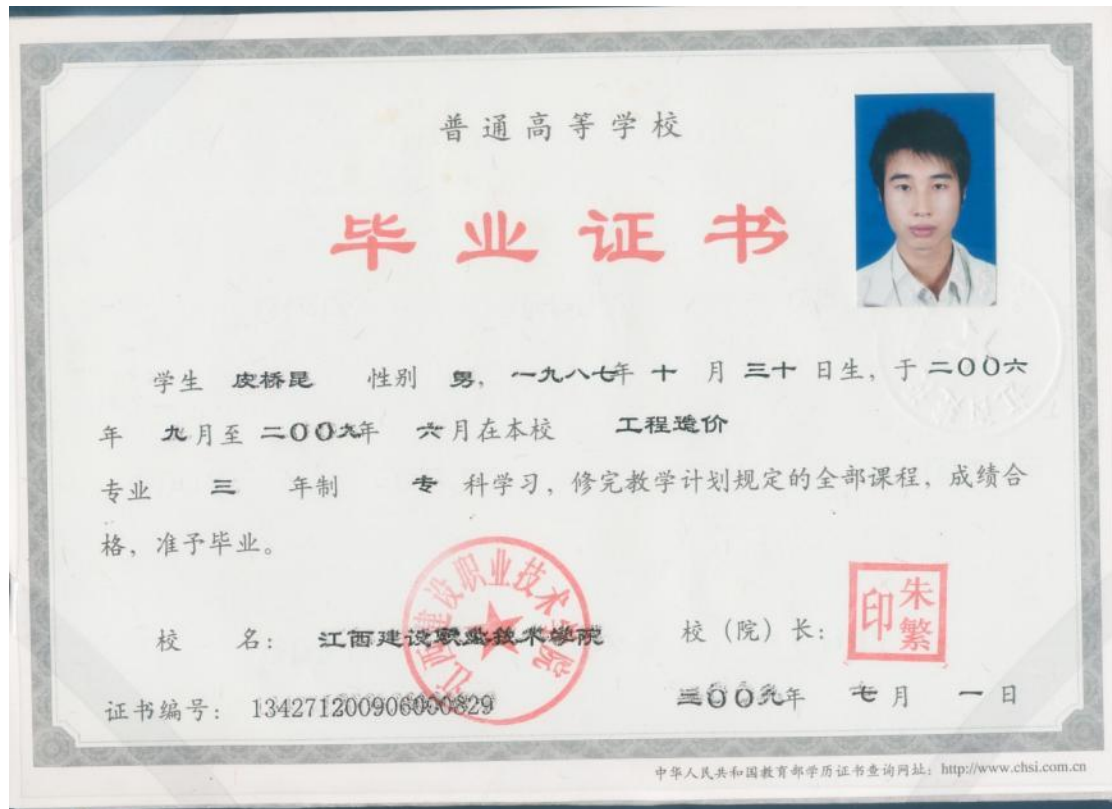 普通高等学校
毕业证书
学生 皮桥昆 性别 男，一九八七年 十 月 三十 日生，于 二〇〇六
年 九月至 二〇〇九年 六月在本校 工程造价
专业 三 年制 专 科学习，修完教学计划规定的全部课程，成绩合
格，准予毕业。
江西建设职业技术学院
校 名： 江西建设职业技术学院 校（院）长：
朱繁印
证书编号： 134271200906000829 二〇〇九年 七月 一日
中华人民共和国教育部学历证书查询网址：http://www.chsi.com.cn